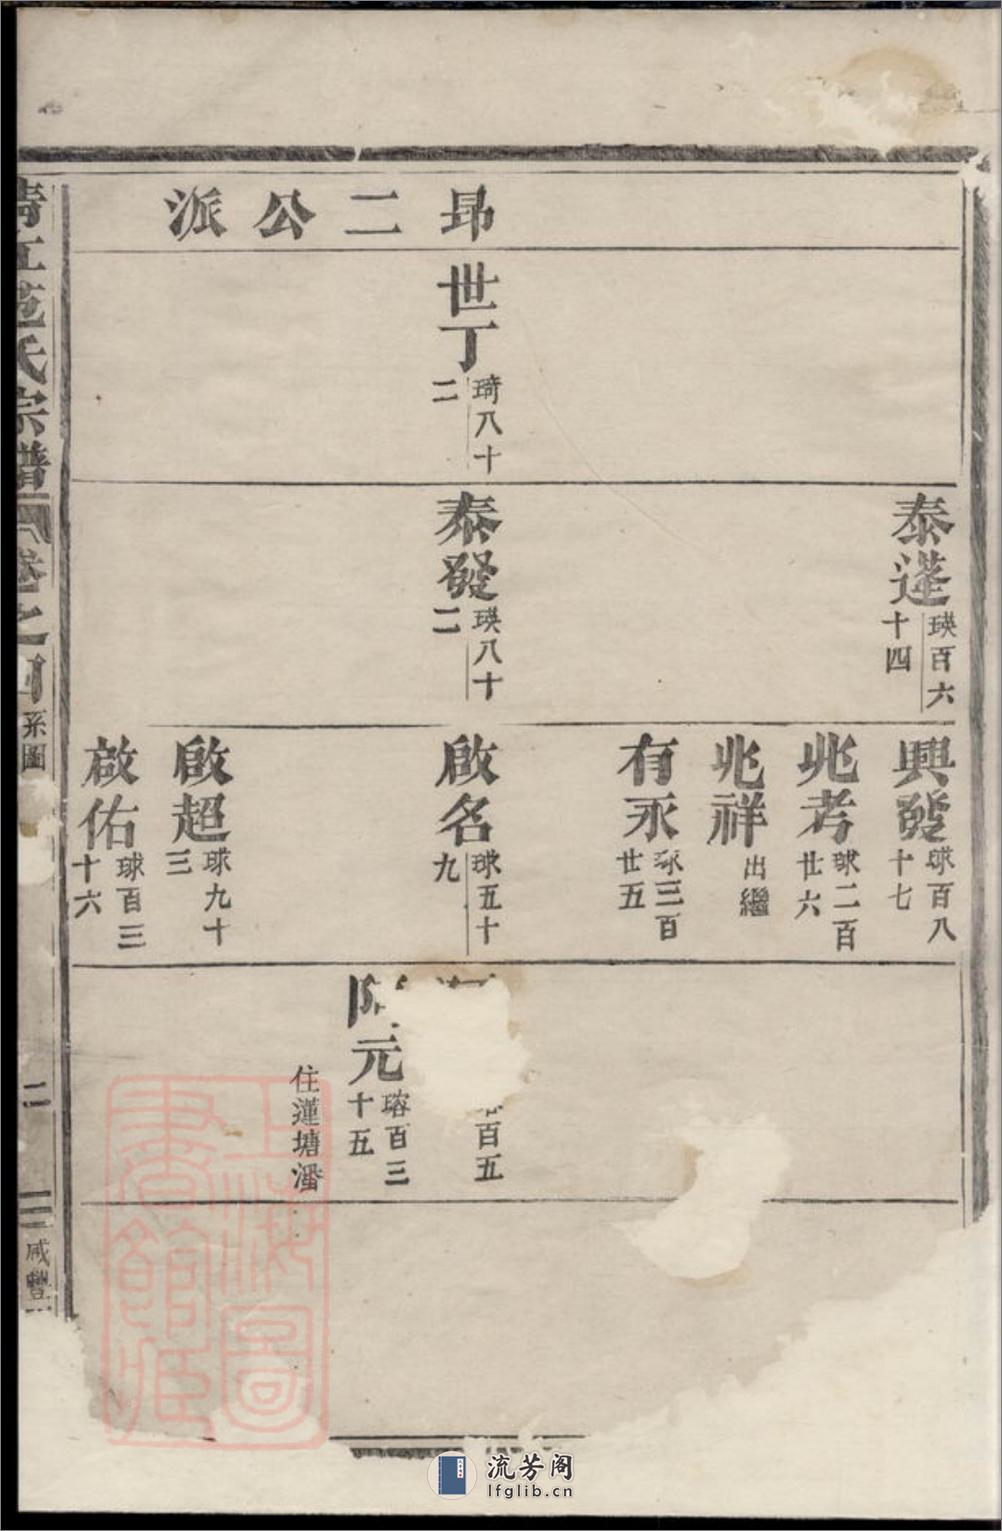 昻二公派
世丁
琦八十
二
泰蓬
瑛百六
十四
泰發
瑛八十
二
興發
球百八
十七
兆考
球二百
廿六
兆祥
出繼
有永
球三百
廿五
啟名
球五十
九
啟超
球九十
三
啟佑
球百三
十六
百五
元
瑢百三
十五
住蓮塘潘
江范氏宗譜
卷之四
系圖
二
咸豐
上海圖書館藏
流芳阁
lfglib.cn